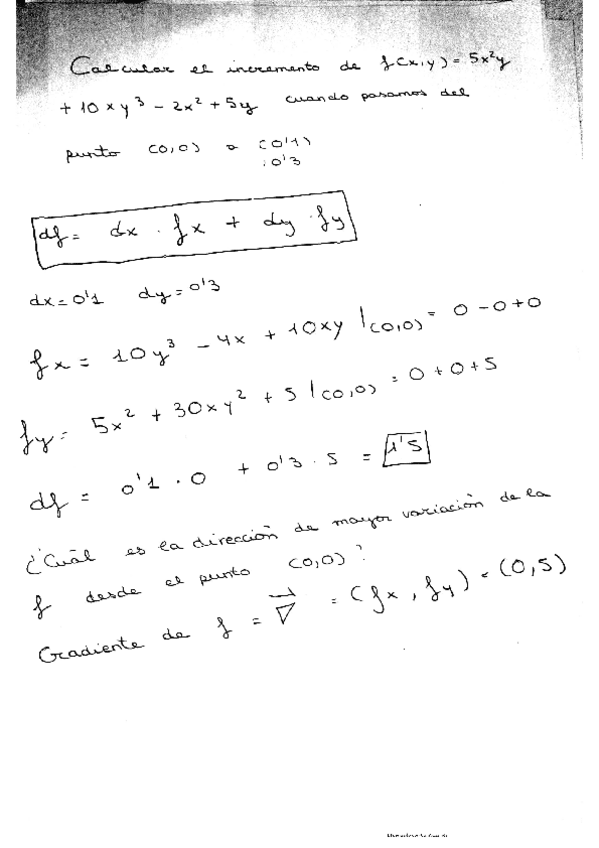 Calcular el incremento de f(x,y) = 5x²y
+ 10xy³ - 2x² + 5y cuando pasamos del
punto (0,0) a (0'1)
:0'3
df = dx · fx + dy · fy
dx = 0'1 dy = 0'3
fx = 10y³ - 4x + 10xy |(0,0) = 0 - 0 + 0
fy = 5x² + 30xy² + 5 |(0,0) = 0 + 0 + 5
df = 0'1 · 0 + 0'3 · 5 = 1'5
¿Cuál es la dirección de mayor variación de la
f desde el punto (0,0)?
Gradiente de f = ∇⃗ = (fx, fy) = (0,5)